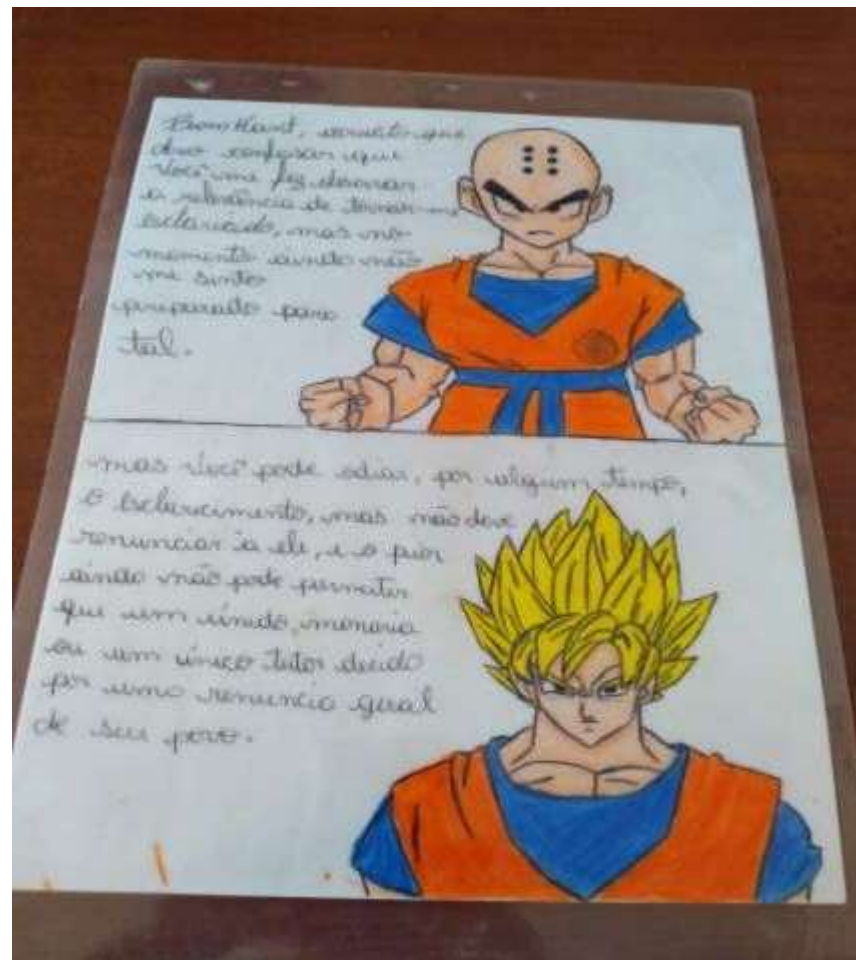 Bom Kant, acredito que
devo confessar que
você me fez observar
a relevância de tornar-me
esclarecido, mas no
momento ainda não
me sinto
preparado para
tal.
mas você pode adiar, por algum tempo,
o esclarecimento, mas não deve
renunciar a ele, e o pior
ainda não pode permitir
que um
ou um único tutor decida
por uma renuncia geral
de seu povo.